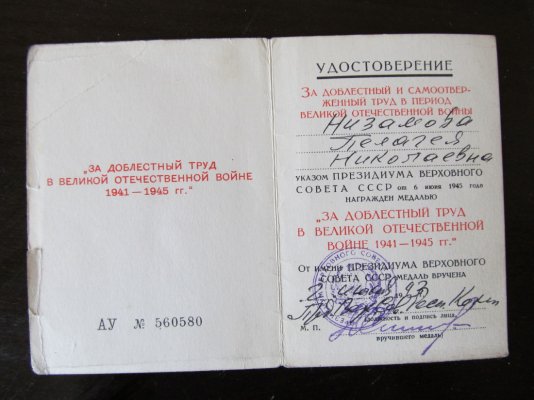 „ЗА ДОБЛЕСТНЫЙ ТРУД
В ВЕЛИКОЙ ОТЕЧЕСТВЕННОЙ ВОЙНЕ
1941—1945 гг.“
АУ № 560580
УДОСТОВЕРЕНИЕ
ЗА ДОБЛЕСТНЫЙ И САМООТВЕР-
ЖЕННЫЙ ТРУД В ПЕРИОД
ВЕЛИКОЙ ОТЕЧЕСТВЕННОЙ ВОЙНЫ
Низамова
Пелагея
Николаевна
УКАЗОМ ПРЕЗИДИУМА ВЕРХОВНОГО
СОВЕТА СССР от 6 июня 1945 года
НАГРАЖДЕН МЕДАЛЬЮ
„ЗА ДОБЛЕСТНЫЙ ТРУД
В ВЕЛИКОЙ ОТЕЧЕСТВЕННОЙ
ВОЙНЕ 1941—1945 гг.“
От имени ПРЕЗИДИУМА ВЕРХОВНОГО
СОВЕТА СССР МЕДАЛЬ ВРУЧЕНА
93
(должность и подпись лица,
М. П.
вручившего медаль)